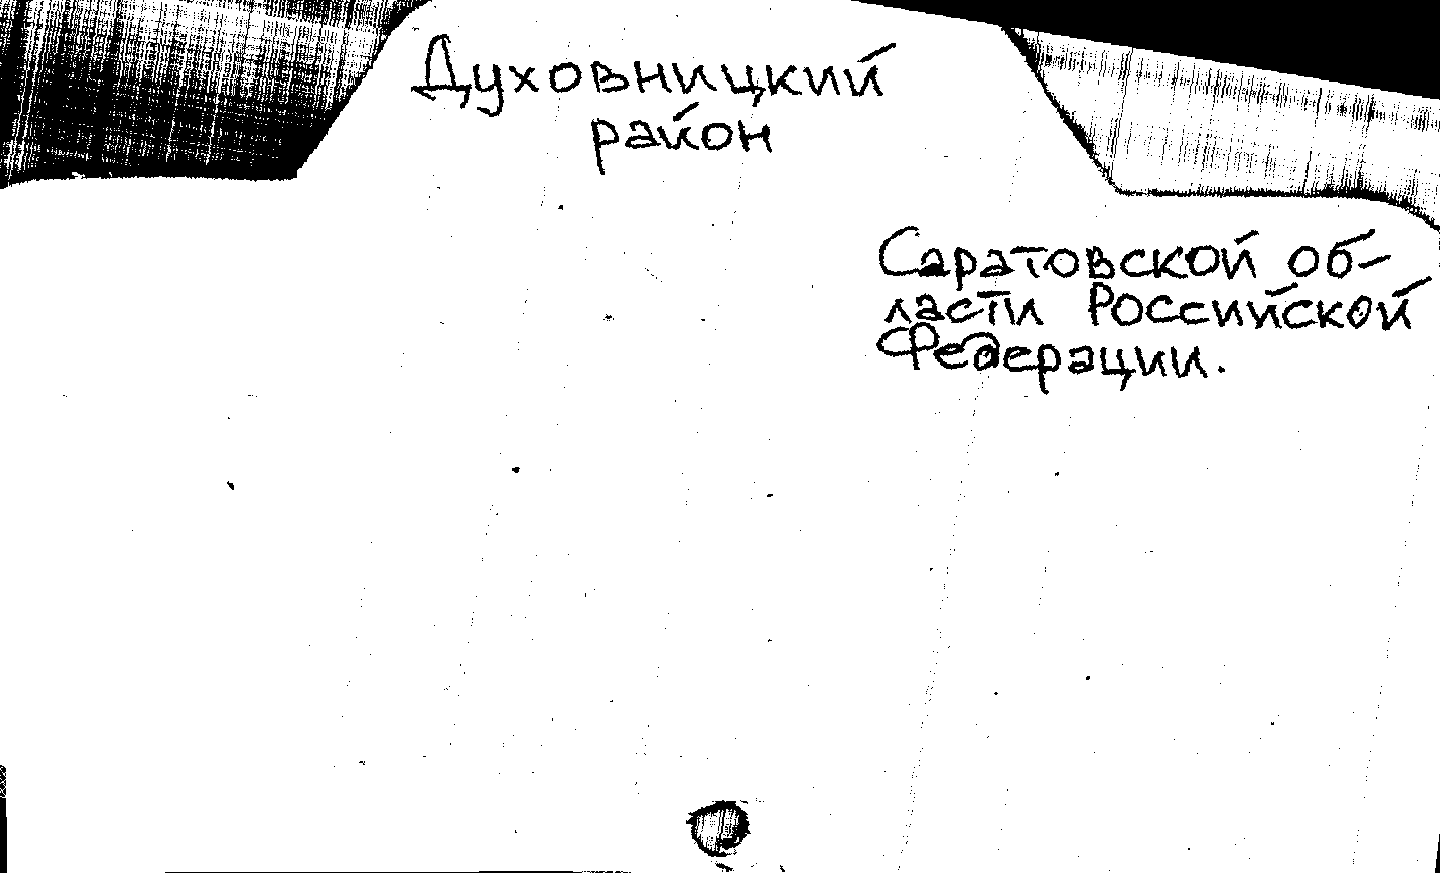 Духовницкий
район
Саратовской об-
ласти Российской
Федерации.